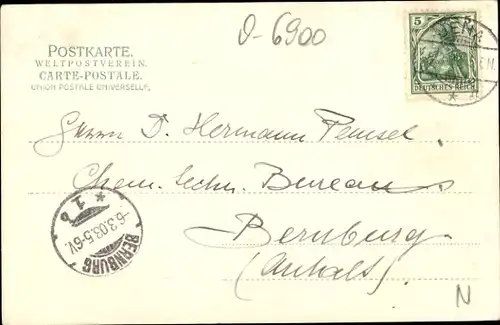 D-6900
POSTKARTE.
WELTPOSTVEREIN.
CARTE-POSTALE.
UNION POSTALE UNIVERSELLE.
5 5
DEUTSCHES REICH
JENA
Herrn D. Hermann Pemsel.
Chem. Techn. Bureau
Bernburg
(Anhalt).
BERNBURG
-6.3.03.5-6V.
* 1 b
N